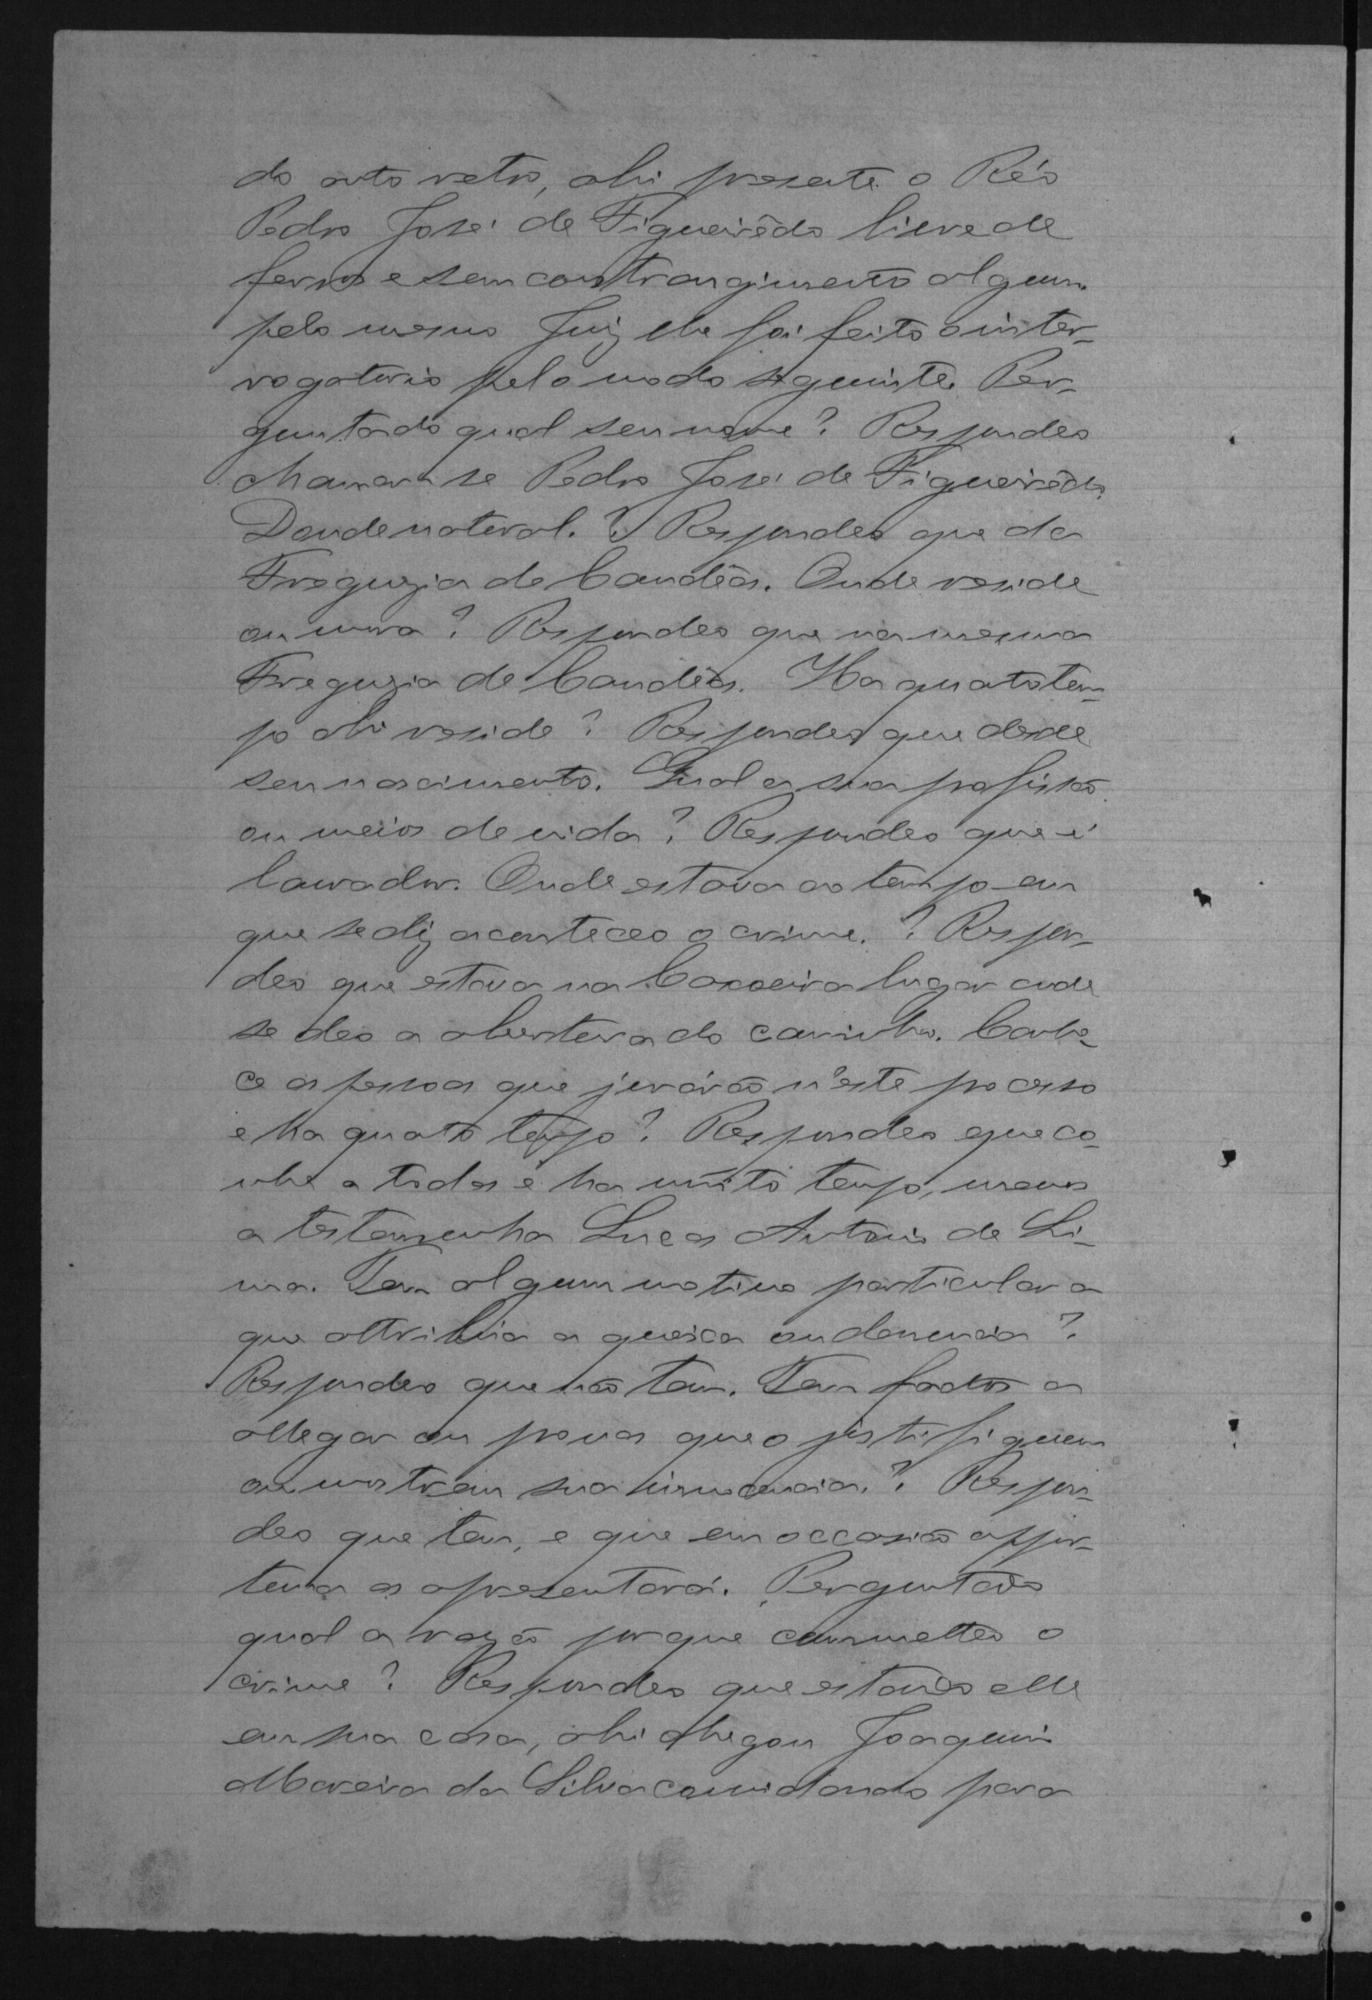 do auto retro, ahi presente o Réo
Pedro José de Figueirêdo livre de
ferros e sem constrangimento algum
pelo mesmo Juiz lhe foi feito o inter-
rogatorio pelo modo seguinte. Per-
guntado qual seu nome? Respondeo
chamar-se Pedro José de Figueirêdo.
Donde natural.? Respondeo que da
Freguezia de Candêas. Onde reside
ou mora? Respondeo que na mesma
Freguezia de Candêas. Ha quato tem-
po ahi reside? Respondeo que desde
seu nascimento. Qual a sua profissão
ou meios de vida? Respondeo que é
lavrador. Onde estava ao tempo em
que se diz aconteceo o crime.? Respon-
deo que estava na Caxoeira lugar onde
se deo a abertura do caminho. Conhe-
ce as pessoas que jurárão n'este processo
e ha quato tempo? Respondeo que co-
nhe a todas e ha muito tempo, menos
a testemunha Lucas Antonio de Li-
ma. Tem algum motivo particular a
que attribúa a queixa ou denuncia?
Respondeo que não tem. Tem factos a
allegar ou provas que o justifiquem
ou mostrem sua innocencia.? Respon-
deo que tem, e que em occasião oppor-
tuna as apresentará. Perguntado
qual a razão porque commetteo o
crime? Respondeo que estando elle
em sua casa, ahi chegou Joaquim
Moreira da Silva convidando para